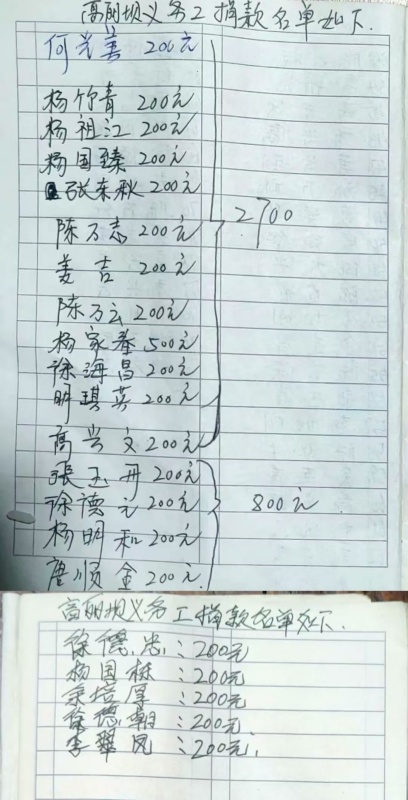 高丽坝义务工捐款名单如下.
何光美 200元
杨竹青 200元
杨祖江 200元
杨国臻 200元
张东秋 200元
陈万志 200元
2700
姜吉 200元
陈万云 200元
杨家春 500元
徐海昌 200元
明琪英 200元
高兴文 200元
張玉丹 200元
徐德元 200元
800元
杨明和 200元
唐顺金 200元.
高丽坝义务工捐款名单如下.
徐德忠:200元
杨国栋:200元
余培厚:200元
徐德朝:200元.
李翠凤:200元.